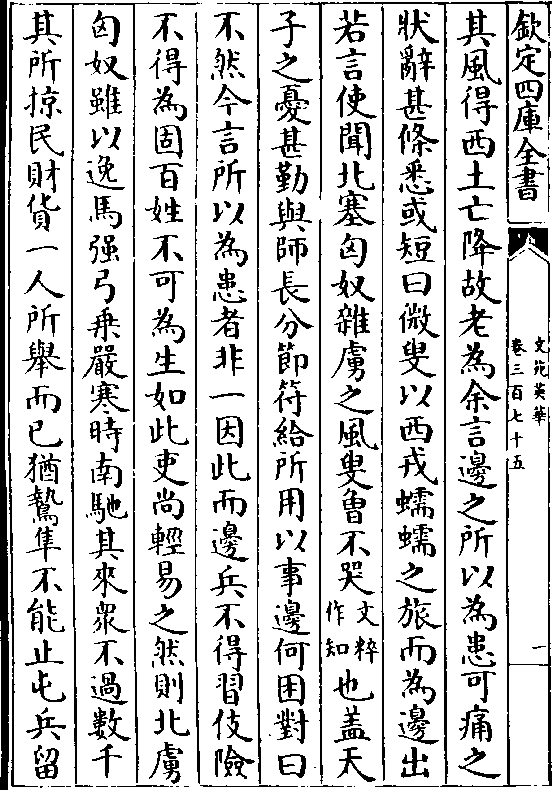 欽定四庫全書
文苑英華
卷三百七十五
一
其風得西土亡降故老為余言邊之所以為患可痛之
狀辭甚條悉或短曰微叟以西戎蠕蠕之旅而為邊出
若言使聞北塞匈奴雜虜之風叟曾不哭文粹作知也蓋天
子之憂甚勤與師長分節符給所用以事邊何困對曰
不然今言所以為患者非一因此而邊兵不得習伎險
不得為固百姓不可為生如此吏尚輕易之然則北虜
匈奴雖以逸馬强弓乗嚴寒時南馳其來衆不過數千
其所掠民財貨一人所舉而已猶鷙隼不能止屯兵留